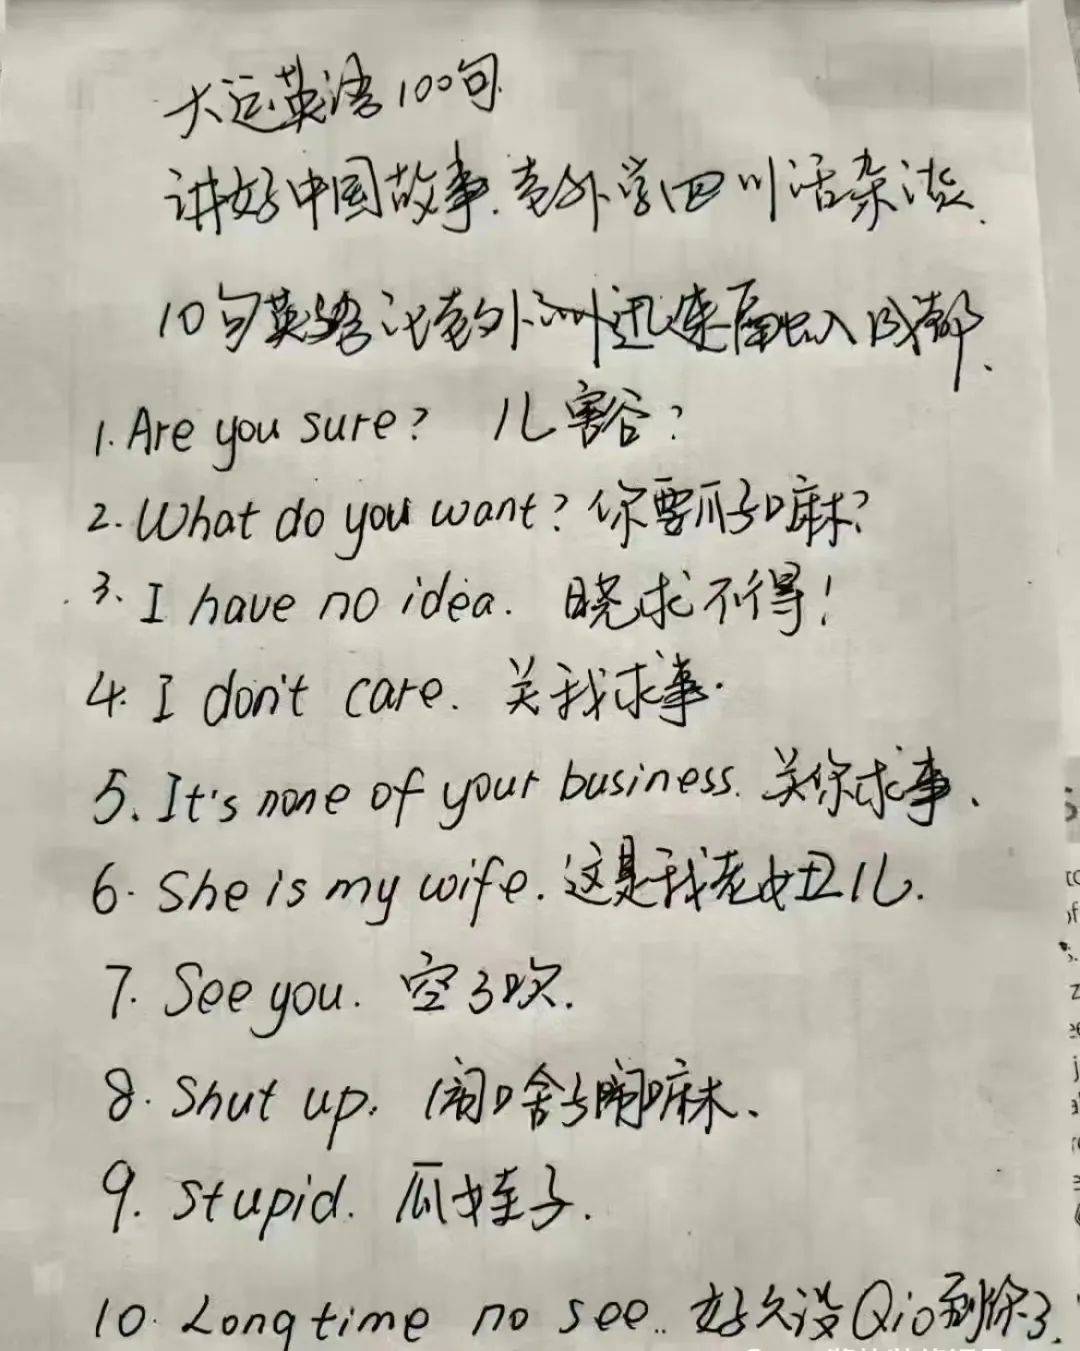 大运英语100句
讲好中国故事.老外学四川话杂谈.
10句英语让老外 迅速融入成都.
1. Are you sure? 儿豁?
2. What do you want? 你要爪子嘛?
3. I have no idea. 晓求不得!
4. I don't care. 关我求事.
5. It's none of your business. 关你求事.
6. She is my wife. 这是我老妞儿.
7. See you. 空了吹.
8. Shut up. 闹啥子闹嘛.
9. Stupid. 瓜娃子.
10. Long time no see.. 好久没Qio到你了.